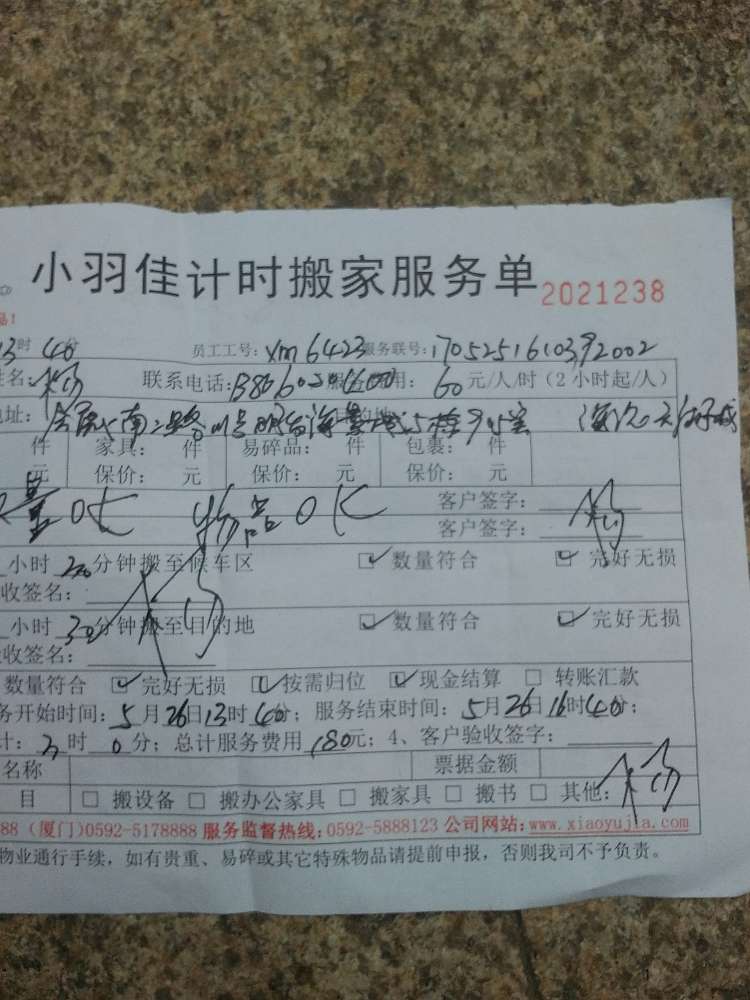 小羽佳计时搬家服务单 2021238
品!
13时40分 员工工号: xm6423 服务联号: 17052516103992002
姓名: 杨 联系电话: 服务费用: 60元/人/时(2小时起/人)
地址:
件 家具: 件 易碎品: 件 包裹: 件
元 保价: 元 保价: 元 保价: 元
量OK 物品OK 客户签字: 杨
客户签字:
小时 分钟搬至候车区 数量符合 完好无损
收签名: 杨
小时30分钟搬至目的地 数量符合 完好无损
收签名:
数量符合 完好无损 按需归位 现金结算 转账汇款
务开始时间: 5月26日13时40分; 服务结束时间: 5月26日16时40分;
计: 3时0分; 总计服务费用180元; 4、客户验收签字: 杨
名称 票据金额
目 搬设备 搬办公家具 搬家具 搬书 其他:
88 (厦门)0592-5178888 服务监督热线:0592-5888123 公司网站:www.xiaoyujia.com
物业通行手续, 如有贵重、易碎或其它特殊物品请提前申报, 否则我司不予负责。